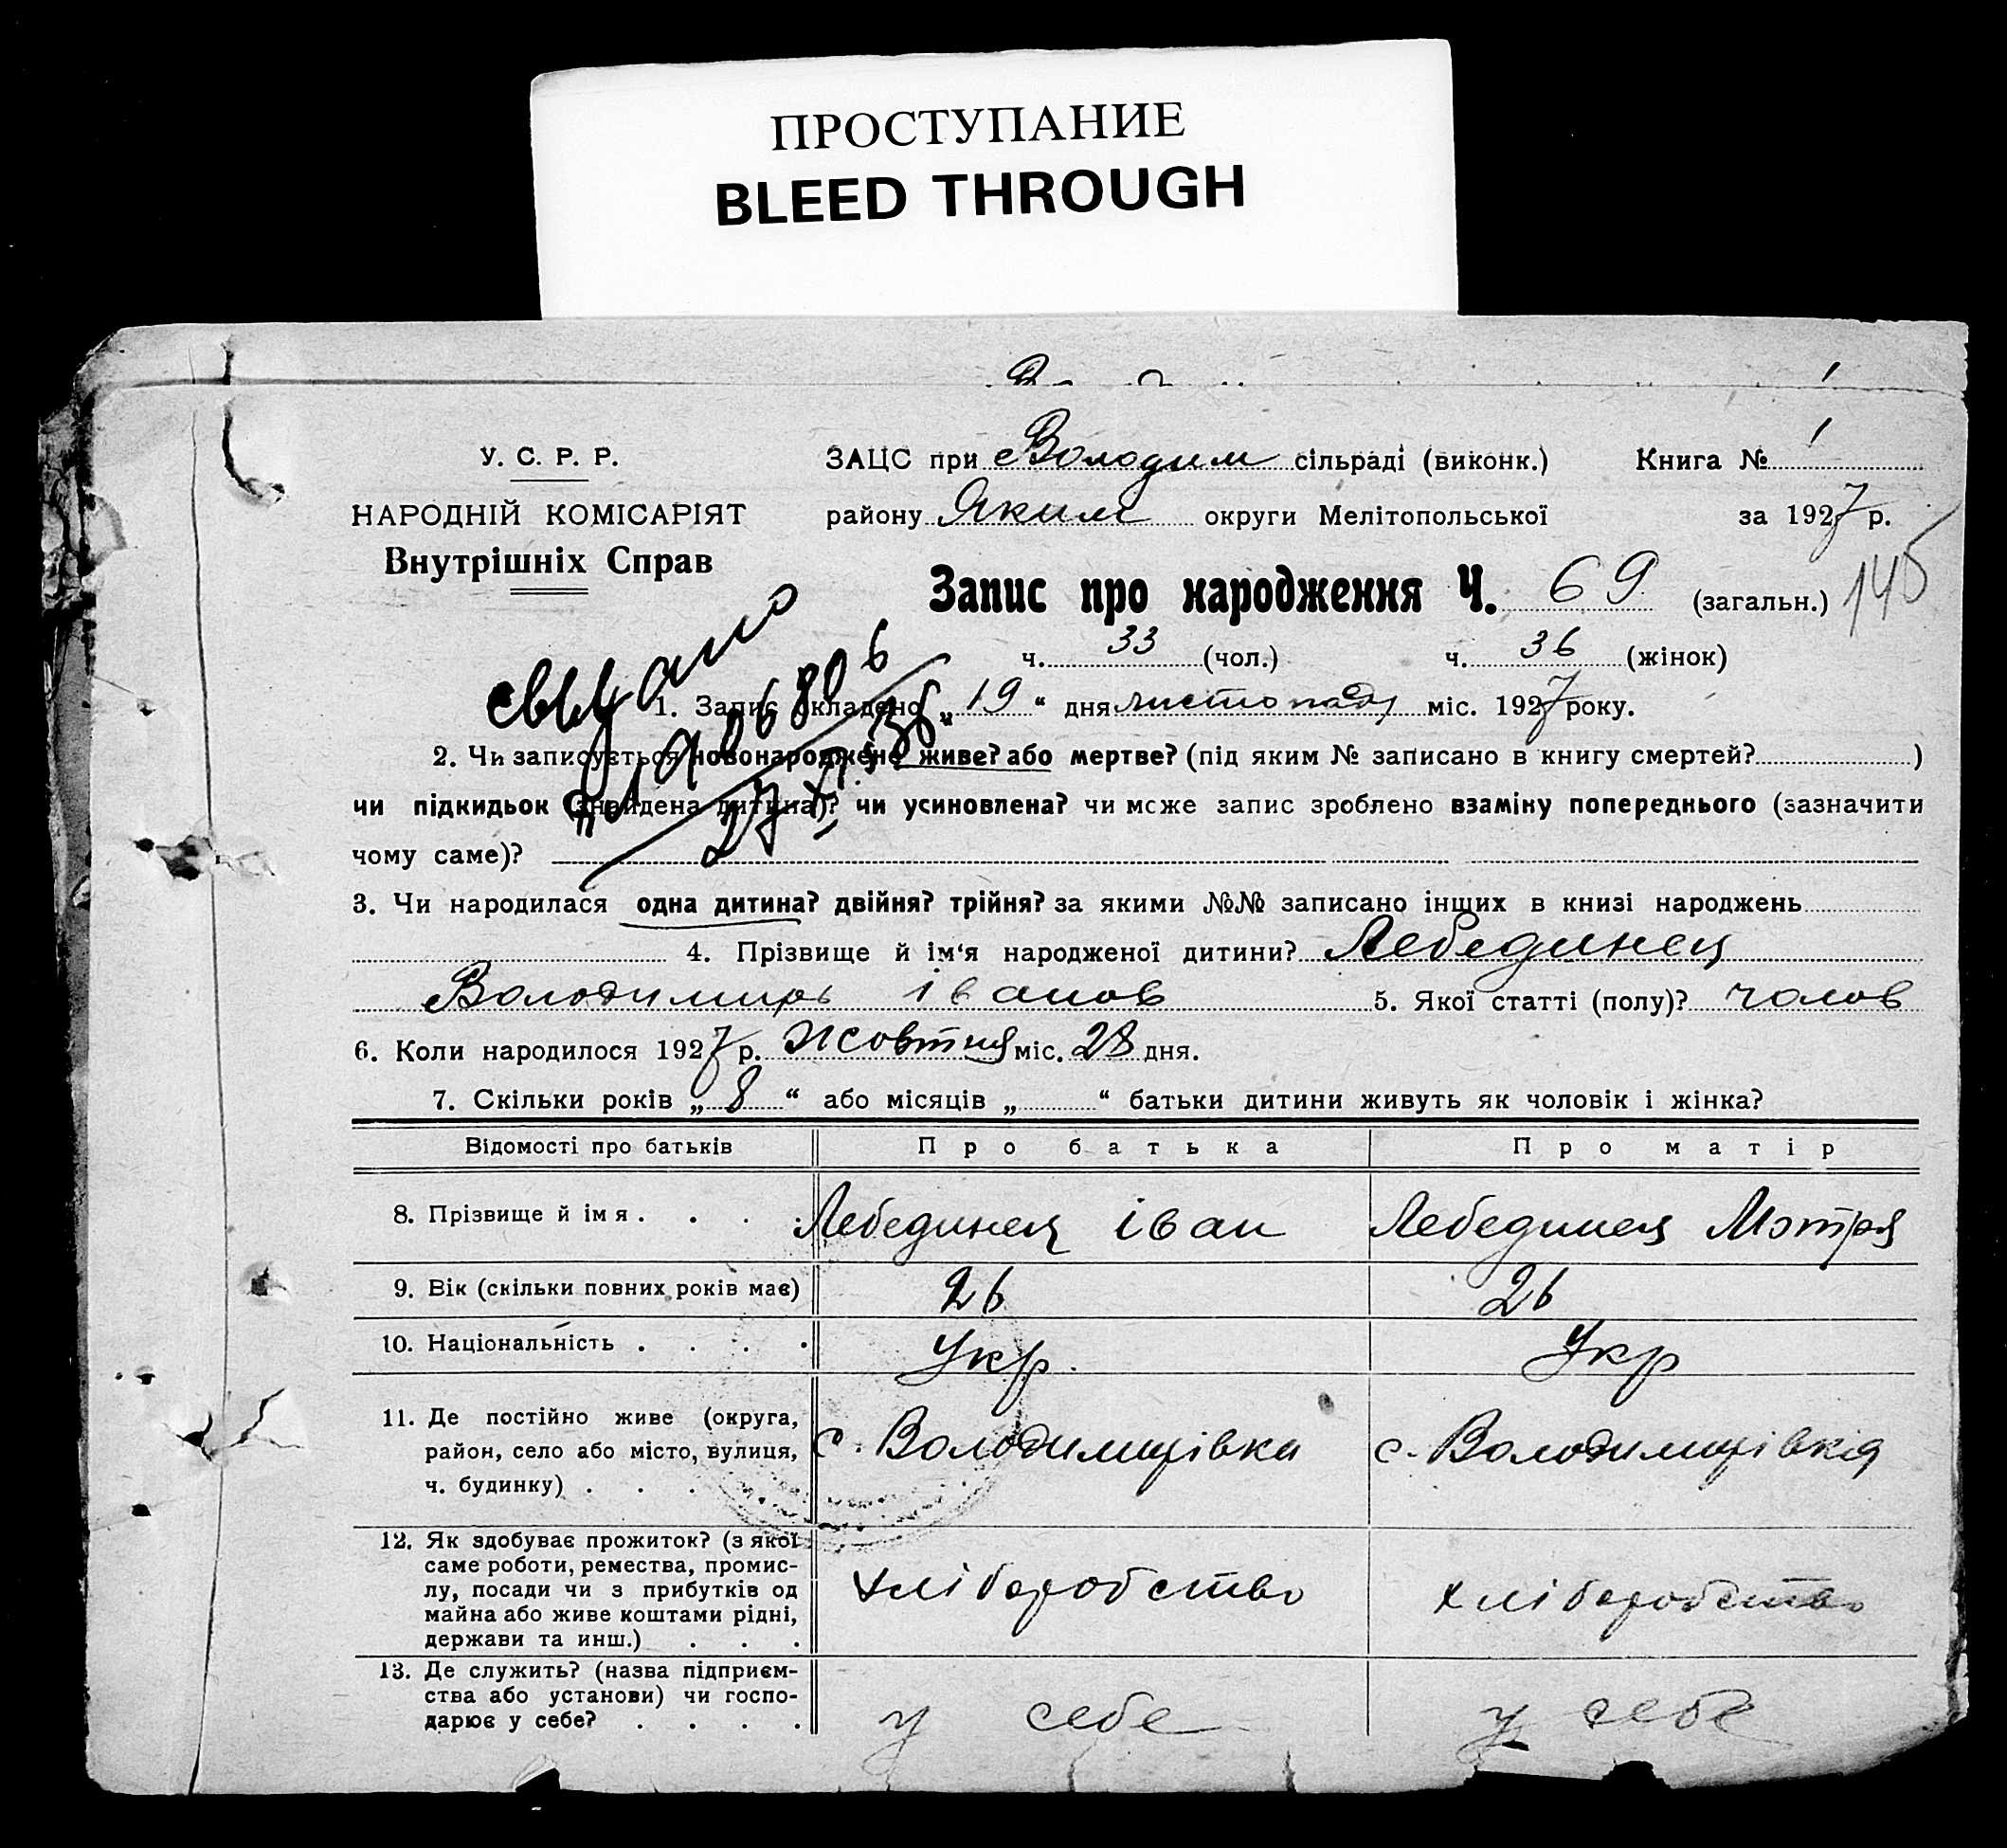 ПРОСТУПАНИЕ
BLEED THROUGH
У. С. Р. Р.
НАРОДНІЙ КОМІСАРІЯТ
Внутрішніх Справ
ЗАЦС при Володим сільраді (виконк.) Книга № 1
району Яким округи Мелітопольської за 1927 р.
145
Запис про народження Ч. 69 (загальн.)
ч. 33 (чол.) ч. 36 (жінок)
1. Запис складено „19“ дня листопаду міс. 1927 року.
2. Чи записується новонароджене живе? або мертве? (під яким № записано в книгу смертей? )
чи підкидьок (знайдена дитина)? чи усиновлена? чи може запис зроблено взаміну попереднього (зазначити
чому саме)?
3. Чи народилася одна дитина? двійня? трійня? за якими №№ записано інших в книзі народжень
4. Прізвище й ім‘я народженої дитини? Лебединец
Володимиръ Іванов 5. Якої статті (полу)? чолов
6. Коли народилося 1927 р. Жовтня міс. 28 дня.
7. Скільки років „8“ або місяців „ “ батьки дитини живуть як чоловік і жінка?
Відомості про батьків Про батька Про матір
8. Прізвище й імя . . . . Лебединец Іван Лебединец Мотря
9. Вік (скільки повних років має) 26 26
10. Національність . . . . Укр. Укр
11. Де постійно живе (округа,
район, село або місто, вулиця,
ч. будинку) . . . .
с. Володимирівка с. Володимирівкя
12. Як здобуває прожиток? (з якої
саме роботи, ремества, промис-
лу, посади чи з прибутків од
майна або живе коштами рідні,
держави та инш.) . . .
хліборобство хліборобство
13. Де служить? (назва підприєм-
ства або установи) чи госпо-
дарює у себе? . . . .
у себе у себе